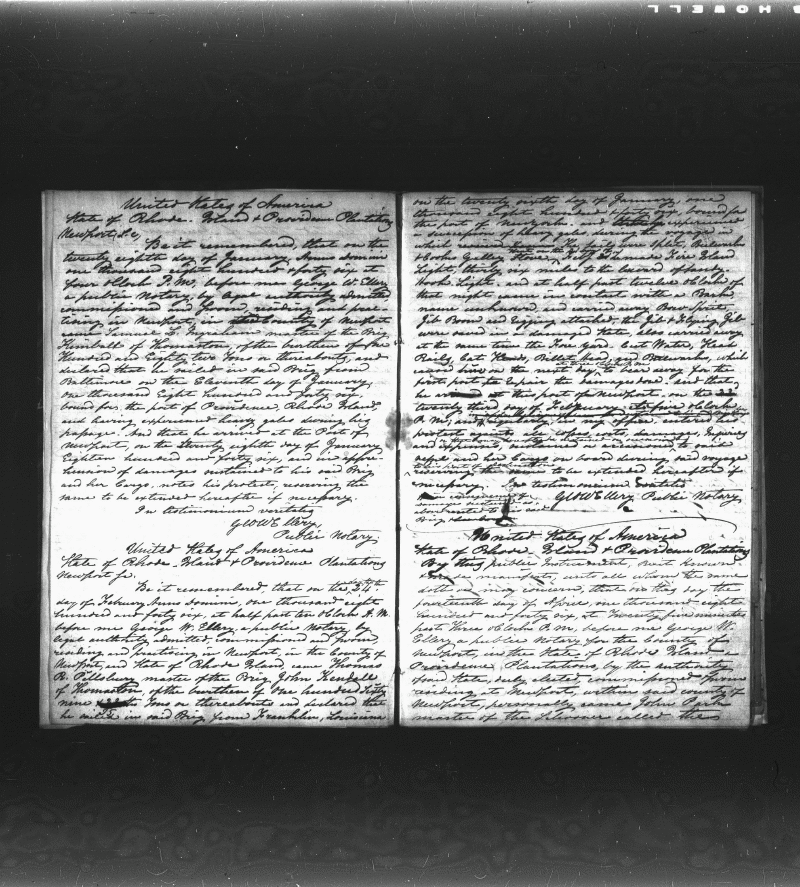 United States of America
State of Rhode-Island & Providence Plantations
Newport, Sc,
Be it remembered, that on the
twenty eighth day of January Anno Domini
one thousand eight hundred & forty six at
four oClock P.M. before me George W. Ellery
a public Notary, by legal authority admitted
commissioned and sworn, residing and prac-
tising in Newport, in the County of Newport
came
master of the Brig
Kimball of Thomaston, of the burthen of One
Hundred and Eighty two Tons or thereabouts, and
declared that he sailed in said Brig from
Baltimore on the Eleventh day of January,
One thousand Eight hundred and forty six,
bound for the port of Providence, Rhode Island,
and having experienced heavy gales during his
passage. And that he arrived in the Port of
Newport, on the twenty eighth day of January
Eighteen hundred and forty six, and in appre-
hension of damages sustained to his said Brig
and her Cargo, notes his protest, reserving the
same to be extended hereafter if necessary.
In testimonium veritatis
Geo W Ellery,
Public Notary.
United States of America
State of Rhode-Island & Providence Plantations
Newport Sc.
Be it remembered, that on the 24th
day of February Anno Domini, one thousand eight
hundred and forty six, at half past ten oClock A.M.
before me George W. Ellery, a public Notary by
legal authority admitted, commissioned and sworn,
residing and practising in Newport, in the County of
Newport, and State of Rhode Island, came Thomas
R. Pillsbury master of the Brig John Kendall
of Thomaston, of the burthen of One hundred fifty
nine Tons or thereabouts and declared that
he sailed in said Brig from Franklin, Louisiana
on the twenty sixth day of January, one
thousand eight hundred forty six, bound for
the port of New York and experienced
a succession of heavy gales during the voyage in
which received
were split, Bulwarks
& Cooks Galley Stove,
made Fire Island
Light, thirty six miles to the leeward of Sandy
Hook Light, and at half past twelve oClock of
that night came in contact with a Bark,
name unknown and carried away Bowsprit,
Jib Boom and Rigging attached, the Jib & Flying Jib
were saved in a damaged State, also carried away
at the same time the Fore Yard. Cut Water, Head
Rails, Cat Heads, Billet Head, and Bulwarks, which
on the next day, bore away for the
first port to repair the damages done. And that
he arrived at this port of Newport, on the
twenty third day of February
oClock
P.M. and
in my office, entered his
protest
and
sustained to said
vessel and her Cargo on board during said voyage
reserving the same to be extended hereafter if
necessary. In testimonium Veritatis
Geo W Ellery Public Notary
United States of America
State of Rhode-Island & Providence Plantations
By this public Instrument, Be it known
and manifest, unto all whom the same
doth or may concern, that on this day the
fourteenth day of April one thousand eight
hundred and forty six, at twenty five minutes
past three oClock P.M. before me George W.
Ellery, a public Notary for the County of
Newport, in the State of Rhode Island &
Providence Plantations, by the authority
of said State, duly elected commissioned & sworn
residing at Newport, within said County of
Newport, personally came John Park
master of the Schooner called the